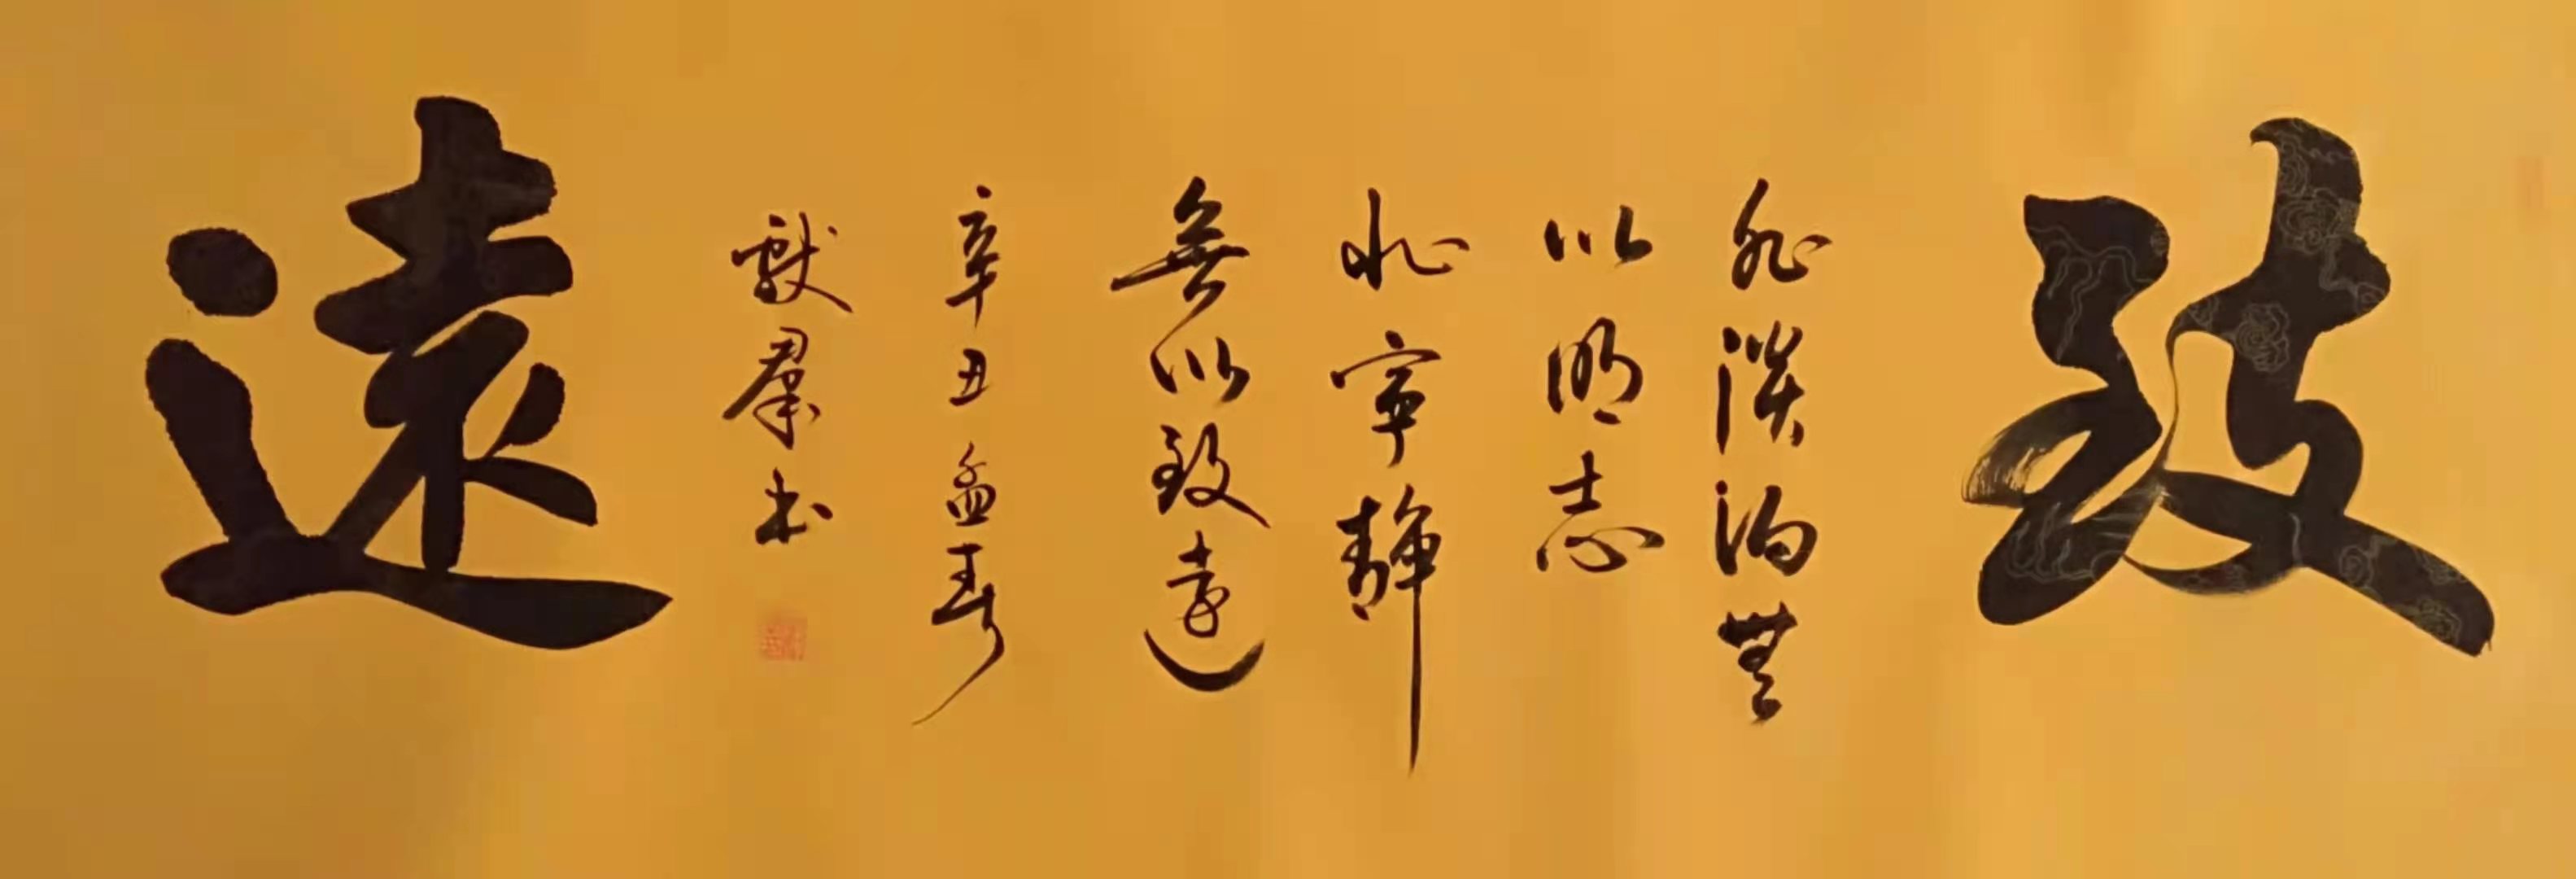 致
非淡泊無
以明志
非寧靜
無以致遠
辛丑孟春
獻羣书
遠